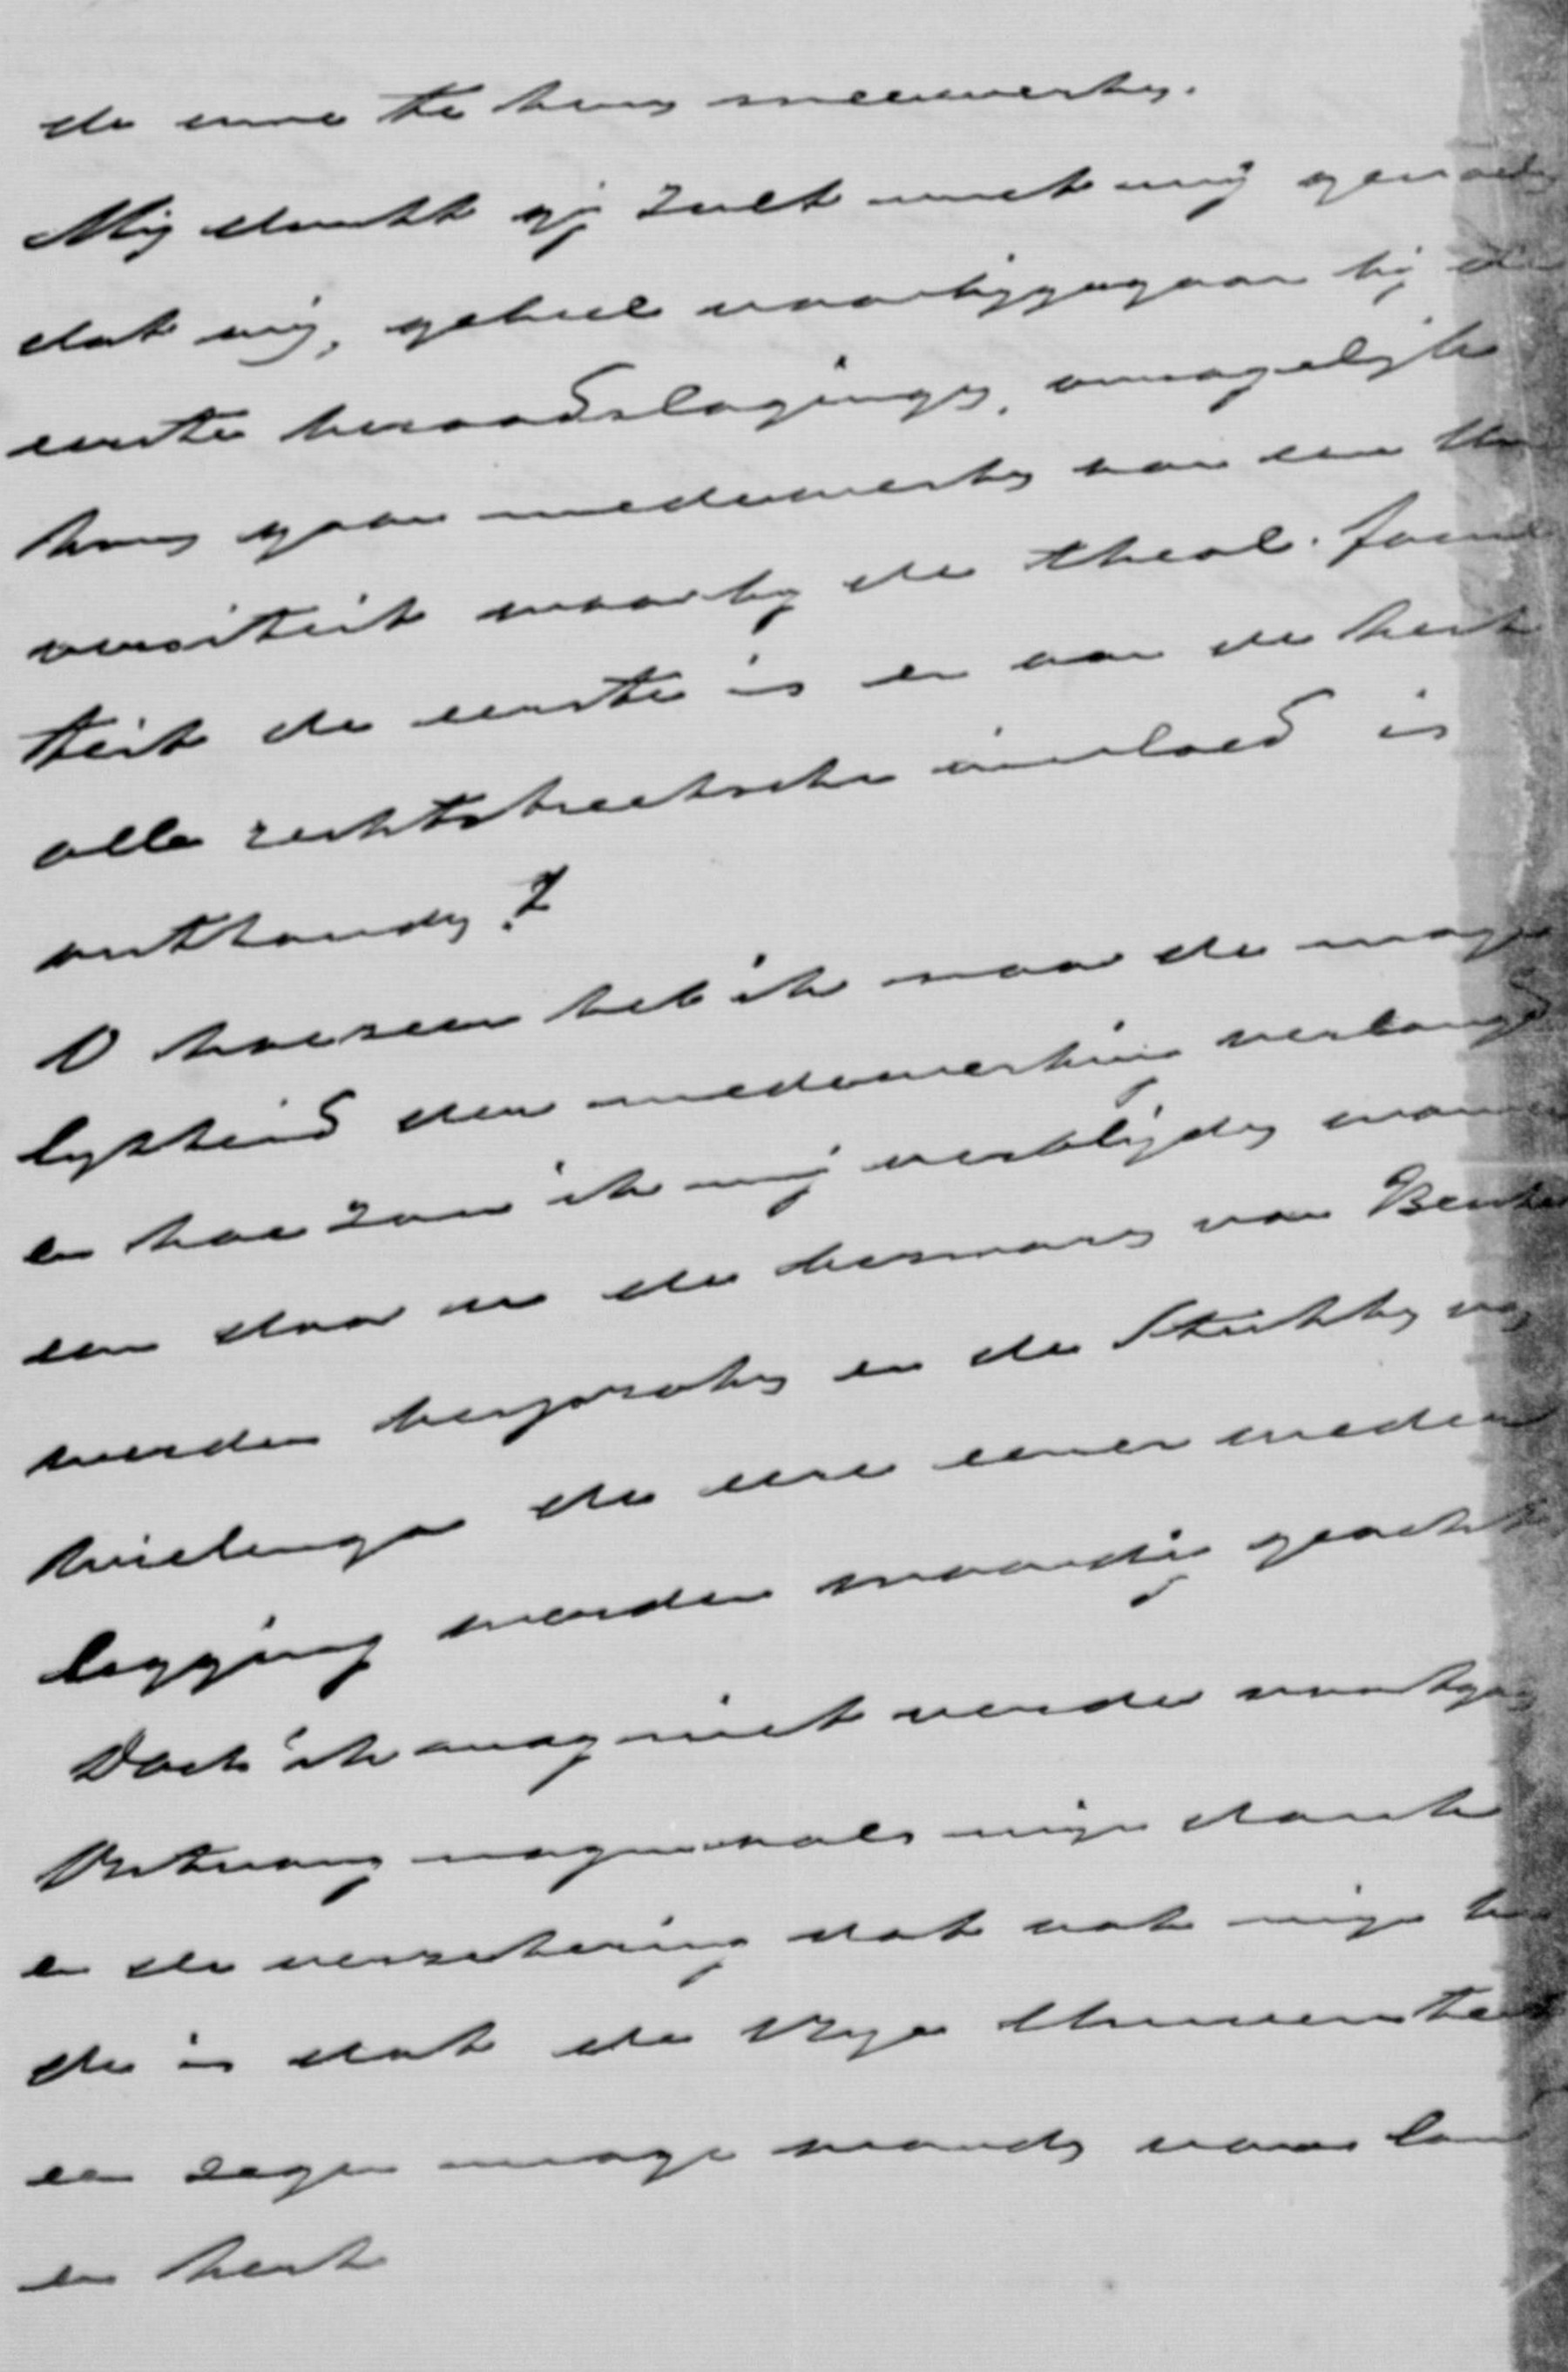 de eene te hing meewerken.
Mij dunkt gij zult met mij gevoelen
dat wij, geheel voorbijgegaan bij de
eerste beraadslagingen, onmogelijk
kunnen gaan medewerken aan een Uni
versiteit waarbij de theol. facul
teit de eerste is en aan de kerk
alle rechtstreeksche invloed is
onthouden?
O hoezeer heb ik naar de moge
lykheid der medewerking verlangd
en hoe zou ik mij verblijden wan
eer door u de bezwaren van Kerke
werden besproken en de Stukken
der eene eener weder
legging werden waardig geacht
Doch ik mag niet verder voortgaan
Ontvang nogmaals mijn dank
en de verzekering dat ook mijn be
de is dat de Vrije Universiteit
een zegen moge worden voor land
en kerk